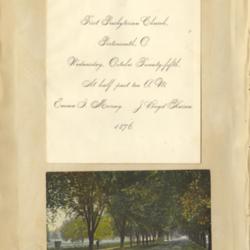 First Presbyterian Church,
Portsmouth, O
Wednesday, October Twenty-fifth,
At half past ten A.M.
Emma I. Murray. J Boyd
1876